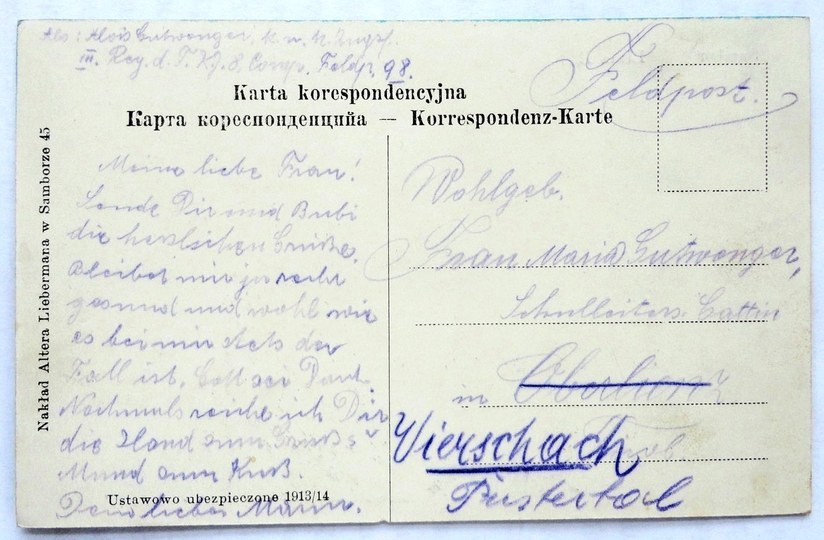 Abs: Alois Gutwenger, K. u. K. Zugsf.
III. Reg. d. T. KJ. 8. Comp. Feldp. 98.
Karta korespondencyjna
Карта кореспонденцийна — Korrespondenz-Karte
Feldpost.
Nakład Altera Liebermana w Samborze 45
Meine liebe Frau!
Sende Dir und Bubi
die herzlichen Grüße.
Bleibet mir ja recht
gesund und wohl wie
es bei mir stets der
Fall ist. Gott sei Dank
Nochmals reiche ich Dir
die Hand zum Gruß u.
Mund zum Kuß.
Dein lieber Mann.
Ustawowo ubezpieczone 1913/14
Wohlgeb.
Frau Maria Gutwenger,
Schulleiters Gattin
in Oberlienz
Tirol
Vierschach
Pustertal